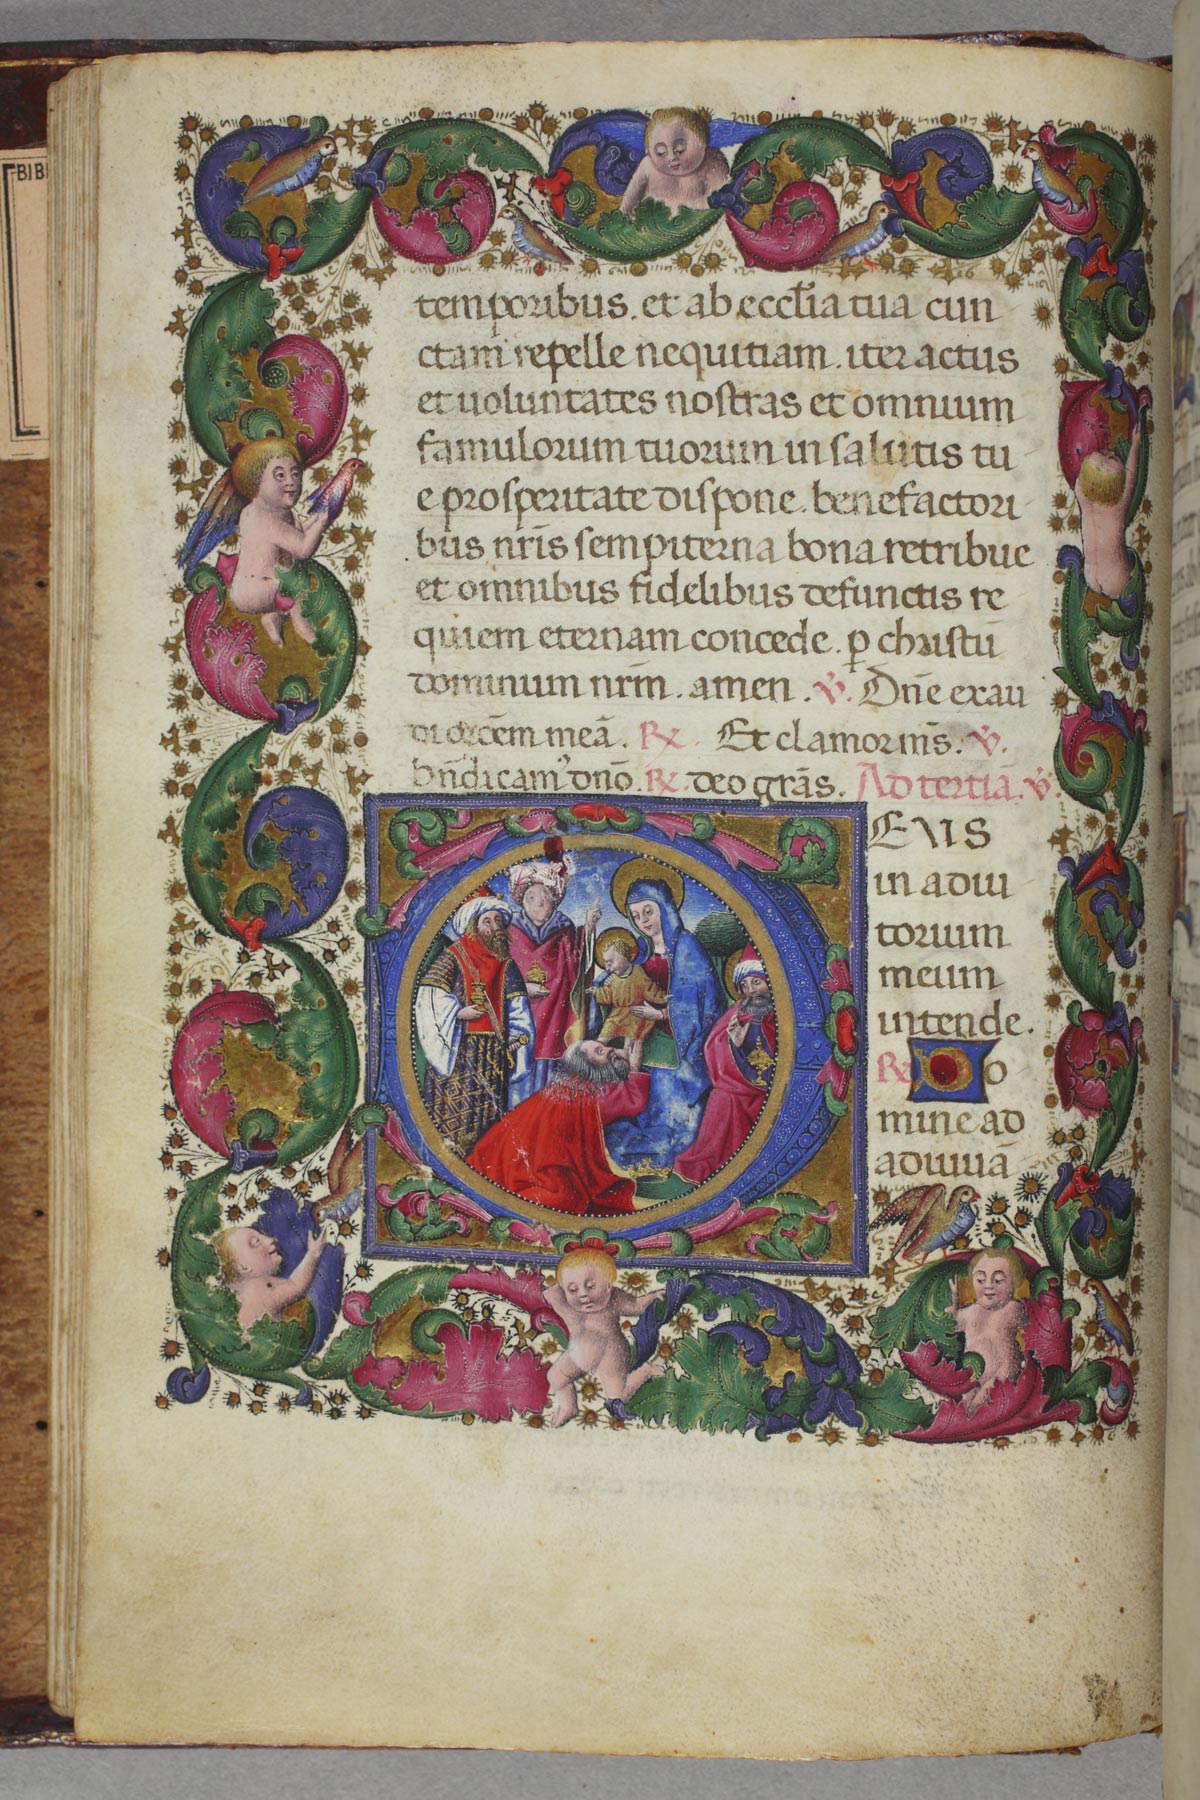 BIB
temporibus. et ab ecclĩa tua cun
ctam repelle nequitiam. iter actus
et uoluntates nostras et omnium
famulorum tuorum in salutis tu
e prosperitate dispone. benefactori
bus nr̃is sempiterna bona retribue
et omnibus fidelibus defunctis re
quiem eternam concede. ꝑ christũ
dominum nr̃m. amen. ℣. Dñe exau
di orõem meã. ℟. Et clamor m̃s. ℣.
bñdicam᷒ dño. ℟. deo grãs. Ad tertiã. ℣.
DEUS
in adiu
torium
meum
intende.
℟. Do
mine ad
adiuuã